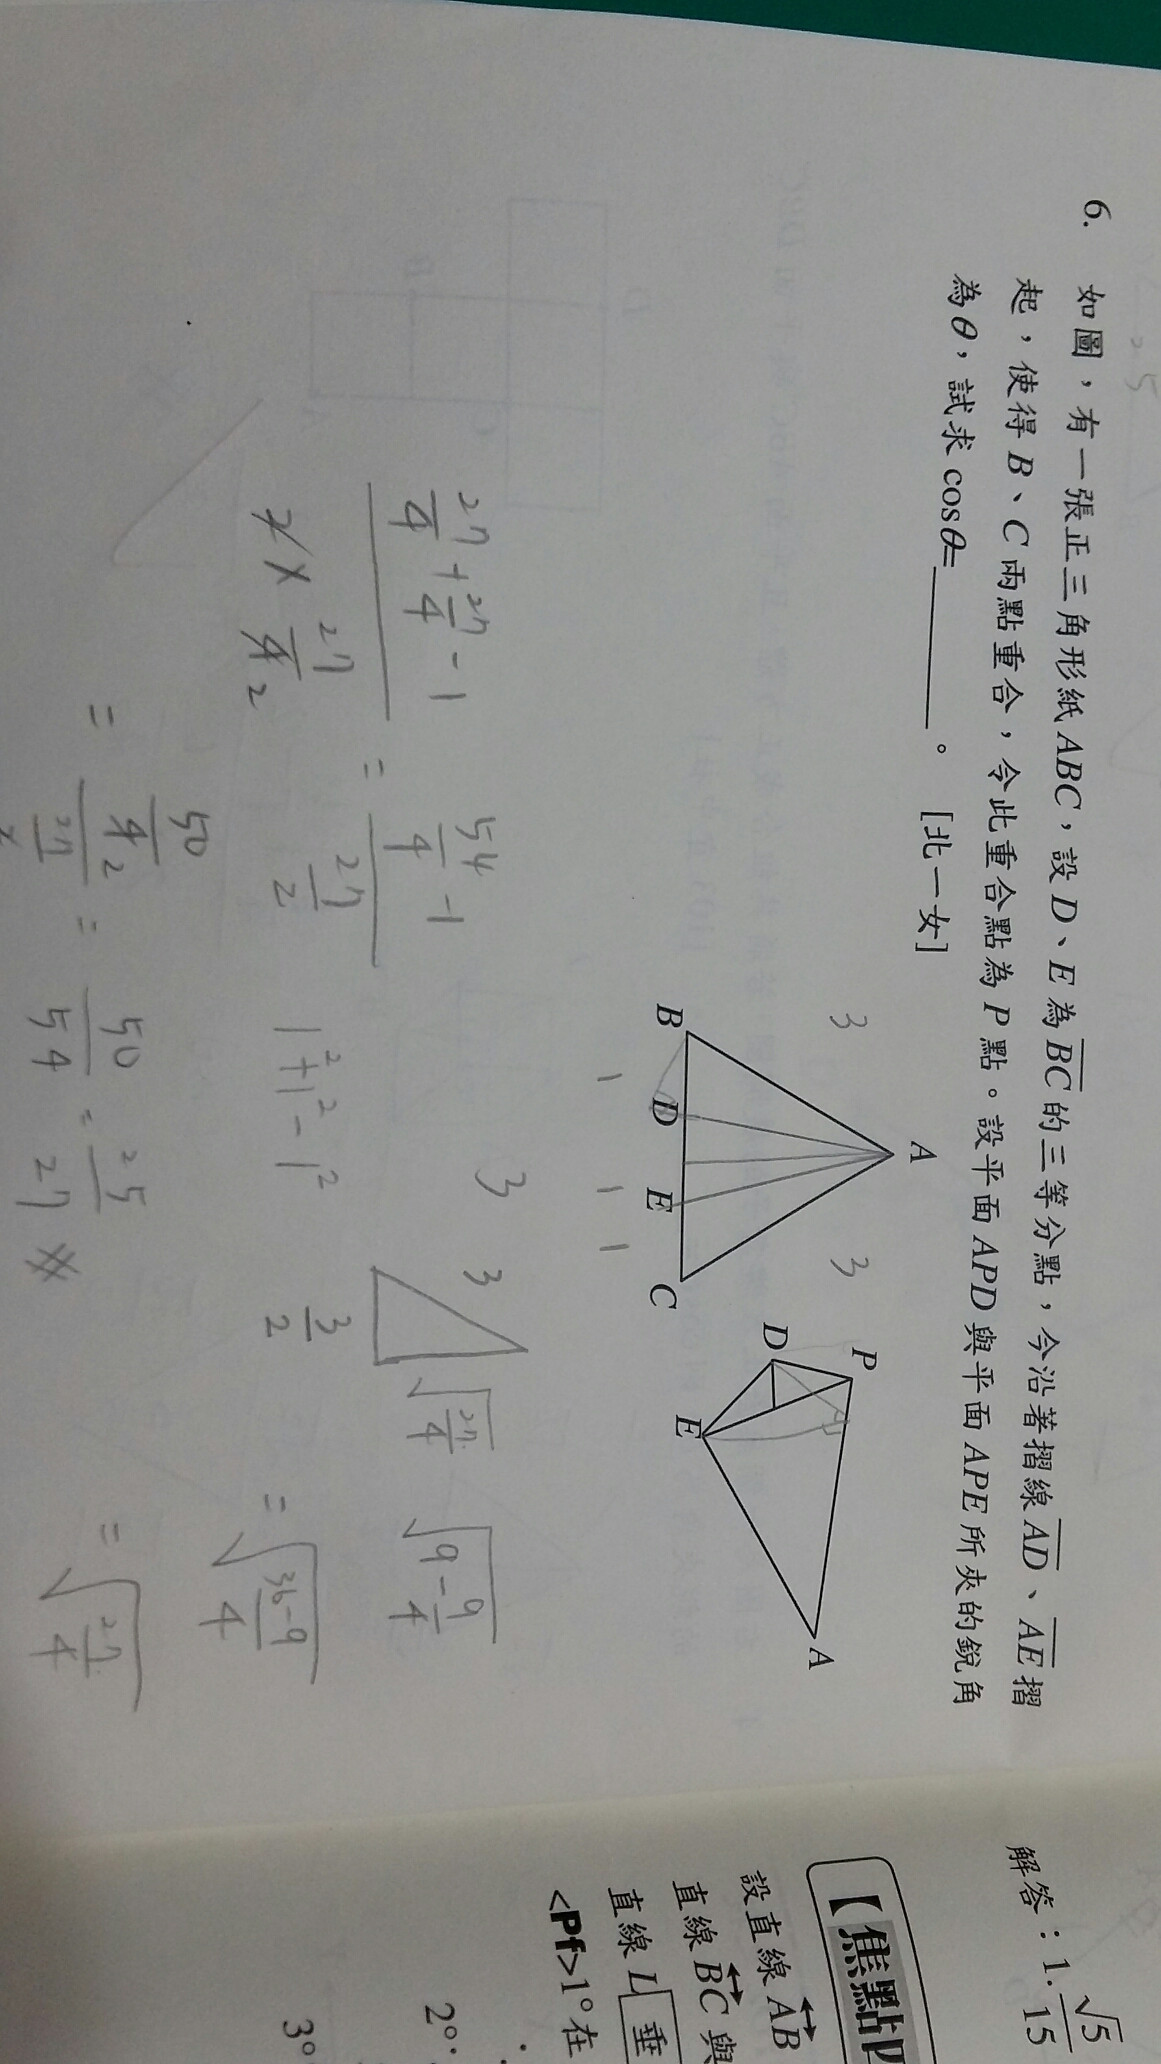 6. 如圖，有一張正三角形紙ABC，設D、E為BC的三等分點，今沿著摺線AD、AE摺
起，使得B、C兩點重合，令此重合點為P點。設平面APD與平面APE所夾的銳角
為θ，試求cosθ=________。 [北一女]
A
3
3
B
D
E
C
1
1
1
P
D
E
A
27/4 + 27/4 - 1
2 × 27/4 2
=
54/4 - 1
27/2
=
50/4 2
27/2
=
50/54
=
25/27
1²+1²-1²
3
3
3/2
√27/4
√9-9/4
= √36-9/4
= √27/4
解答：1. √5/15
【焦點四
設直線AB
直線BC與
直線L垂
<Pf>1°在
2°
3°